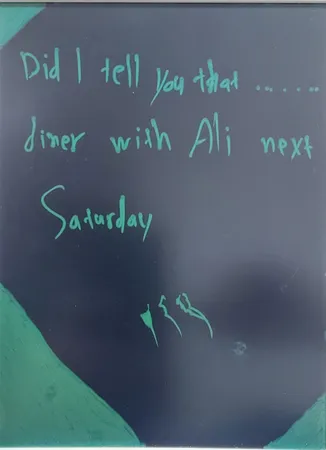 Did I tell you that ......
diner with Ali next
Saturday